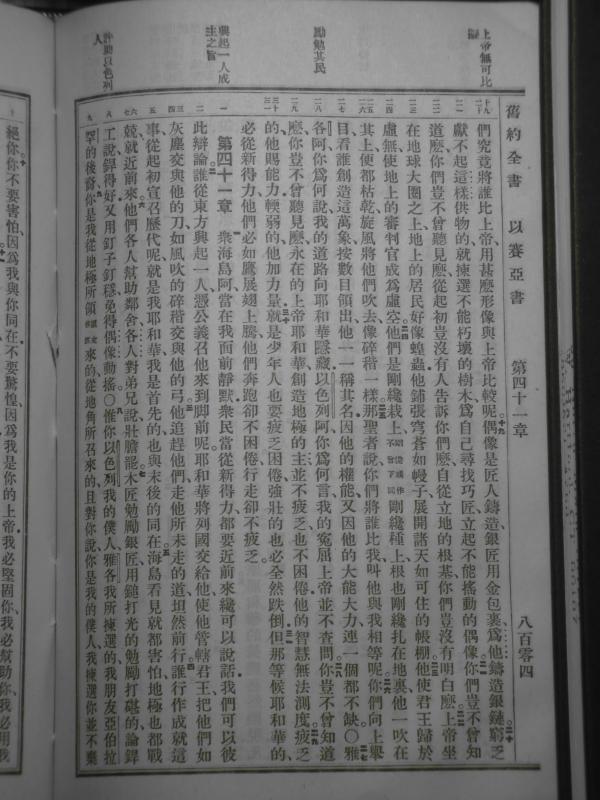 舊約全書 以賽亞書 第四十一章 八百零四
上帝無可比
勵勉其民
興起一人成
主之旨
們究竟將誰比上帝用甚麽形像與上帝比較呢偶像是匠人鑄造銀匠用金包裹爲他鑄造銀鏈窮乏
獻不起這樣供物的就揀選不能朽壞的樹木爲自己尋找巧匠立起不能搖動的偶像你們豈不曾知
道麽你們豈不曾聽見麽從起初豈沒有人告訴你們麽自從立地的根基你們豈沒有明白麽上帝坐
在地球大圈之上地上的居民好像蝗蟲他鋪張穹蒼如幔子展開諸天如可住的帳棚他使君王歸於
虛無使地上的審判官成爲虛空他們是剛纔栽上剛纔種上根也剛纔扎在地裏他一吹在
其上便都枯乾旋風將他們吹去像碎秸一樣那聖者說你們將誰比我叫他與我相等呢你們向上舉
目看誰創造這萬象按數目領出他一一稱其名因他的權能又因他的大能大力連一個都不缺〇雅
各阿你爲何說我的道路向耶和華隱藏以色列阿你爲何言我的寃屈上帝並不查問你豈不曾知道
麽你豈不曾聽見麽永在的上帝耶和華創造地極的主並不疲乏也不困倦他的智慧無法測度疲乏
的他賜能力輭弱的他加力量就是少年人也要疲乏困倦強壯的也必全然跌倒但那等候耶和華的
必從新得力他們必如鷹展翅上騰他們奔跑卻不困倦行走卻不疲乏
第四十一章 衆海島阿當在我面前靜默衆民當從新得力都要近前來纔可以說話我們可以彼
此辯論誰從東方興起一人憑公義召他來到脚前呢耶和華將列國交給他使他管轄君王把他們如
灰塵交與他的刀如風吹的碎秸交與他的弓他追趕他們走他所未走的道坦然前行誰行作成就這
事從起初宣召歷代呢就是我耶和華我是首先的也與末後的同在海島看見就都害怕地極也都戰
兢就近前來他們各人幫助鄰舍各人對弟兄說壯膽罷木匠勉勵銀匠用鎚打光的勉勵打砧的論銲
工說銲得好又用釘子釘穩免得偶像動搖〇惟你以色列我的僕人雅各我所揀選的我朋友亞伯拉
罕的後裔你是我從地極所領來的從地角所召來的且對你說你是我的僕人我揀選你並不棄
絕你你不要害怕因爲我與你同在不要驚惶因爲我是你的上帝我必堅固你我必幫助你我必用我